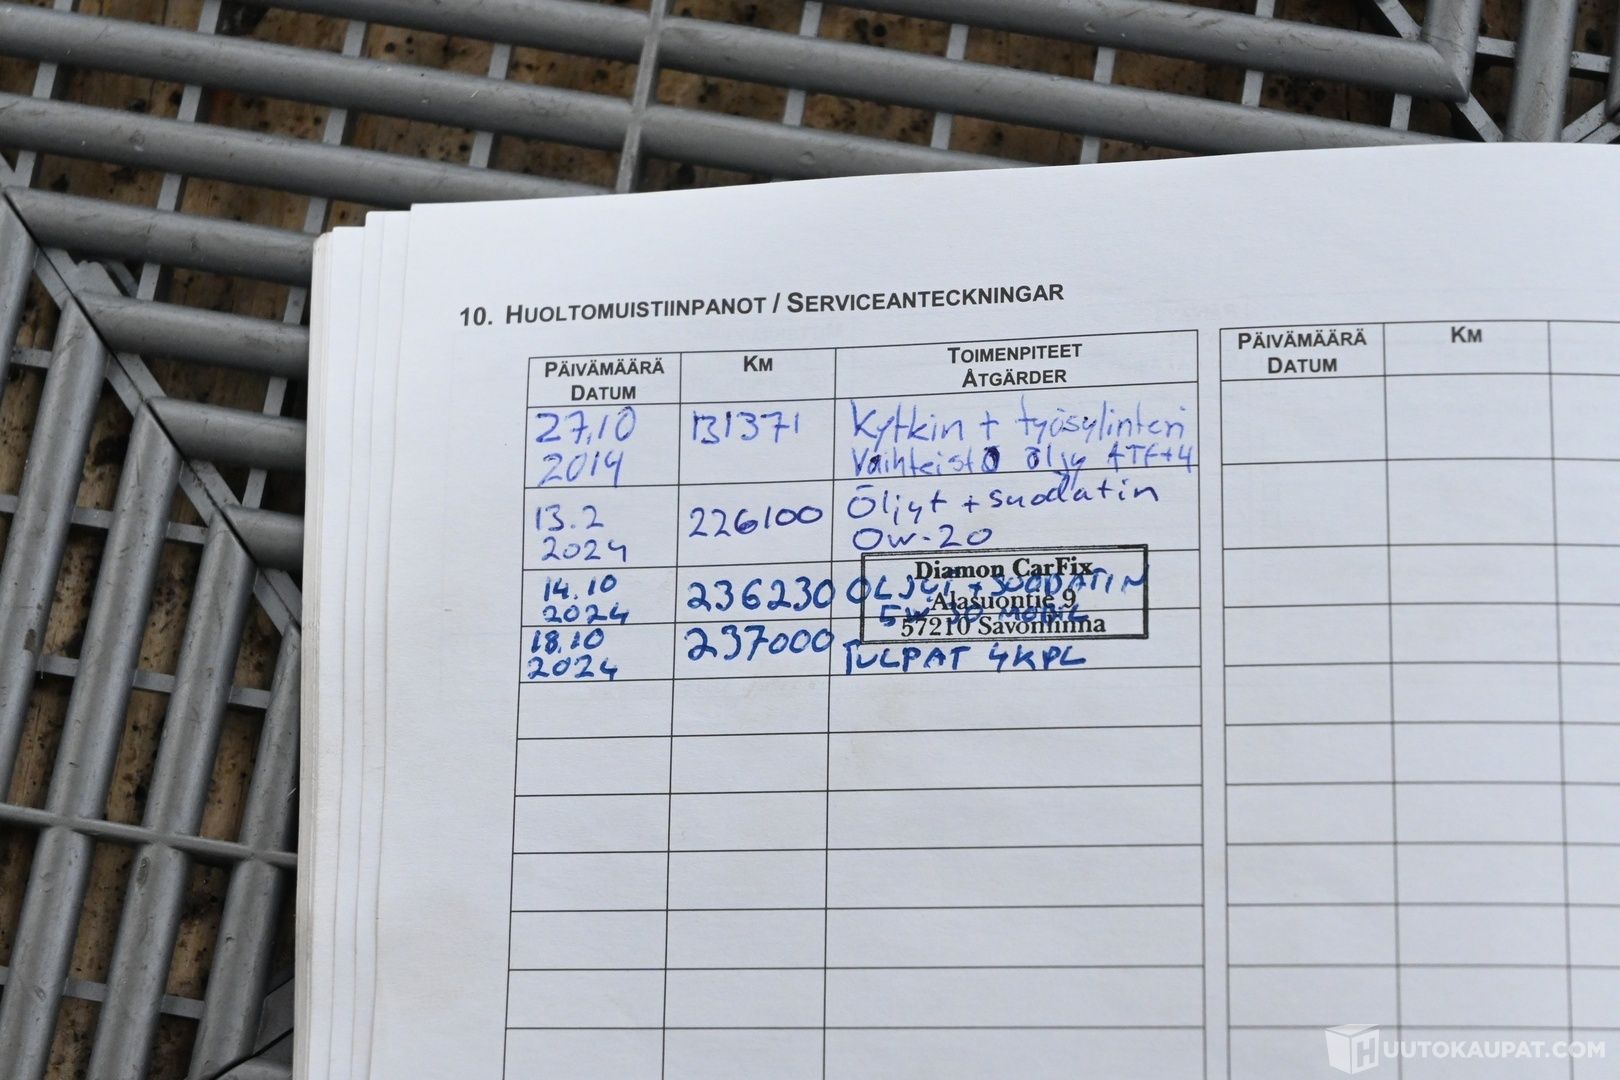 10. HUOLTOMUISTIINPANOT / SERVICEANTECKNINGAR
PÄIVÄMÄÄRÄ
DATUM
KM
TOIMENPITEET
ÅTGÄRDER
PÄIVÄMÄÄRÄ
DATUM
KM
27.10
2014
131371
Kytkin + työsylinteri
Vaihteistö öljy ATF+4
13.2
2024
226100
Öljyt + suodatin
0w-20
14.10
2024
236230
ÖLJYT + SUODATIN
5W 30 MOBIL
Diamon CarFix
Alasuontie 9
57210 Savonlinna
18.10
2024
237000
TULPAT 4KPL
HUUTOKAUPAT.COM